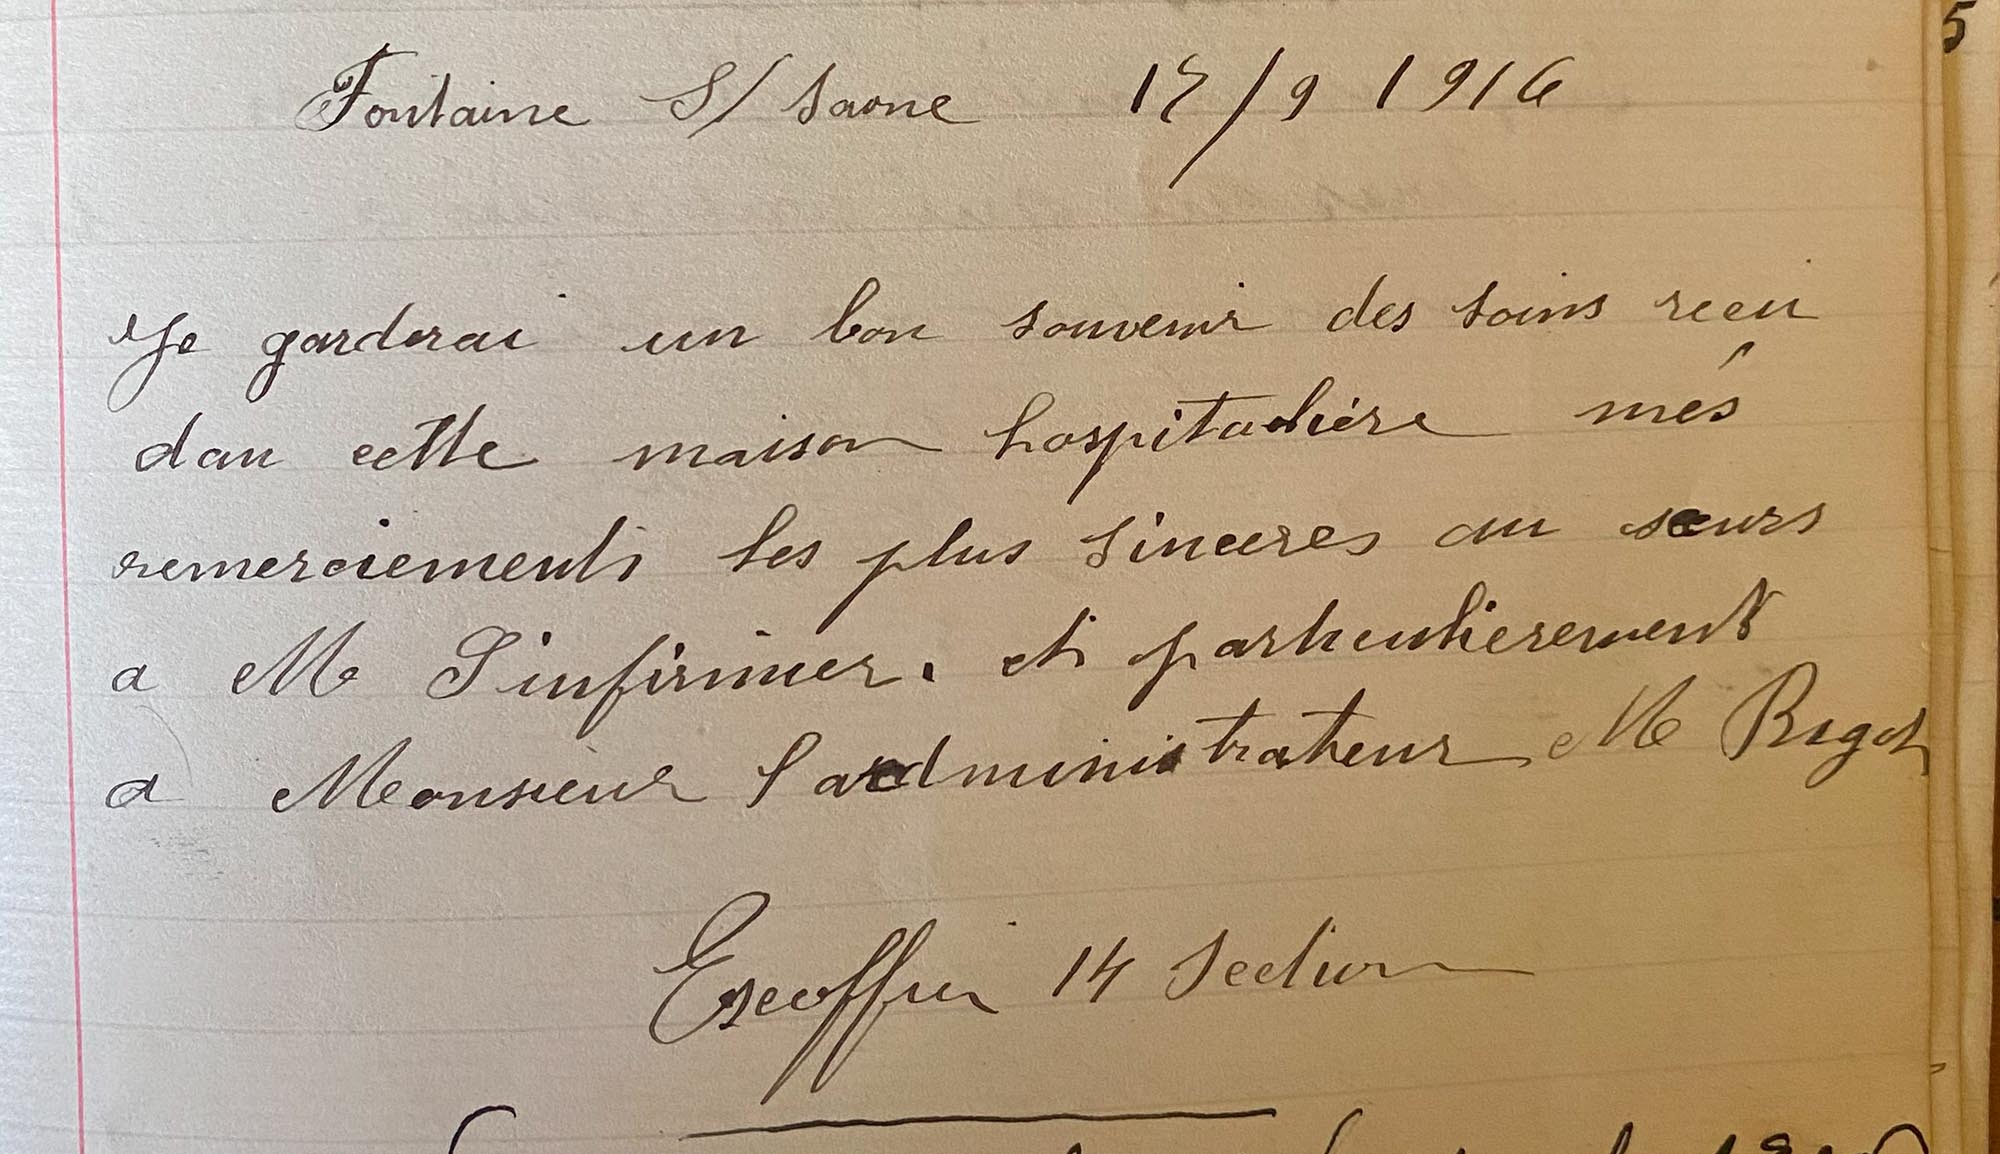 Fontaine S/ Saone 15/9 1916
Je garderai un bon souvenir des soins recu
dan cette maison hospitaliére més
remerciements les plus sinceres au sœurs
a Mr L'infirmier. et particulierement
a Monsieur l'administrateur Mr Rigot
Escoffier 14 Section